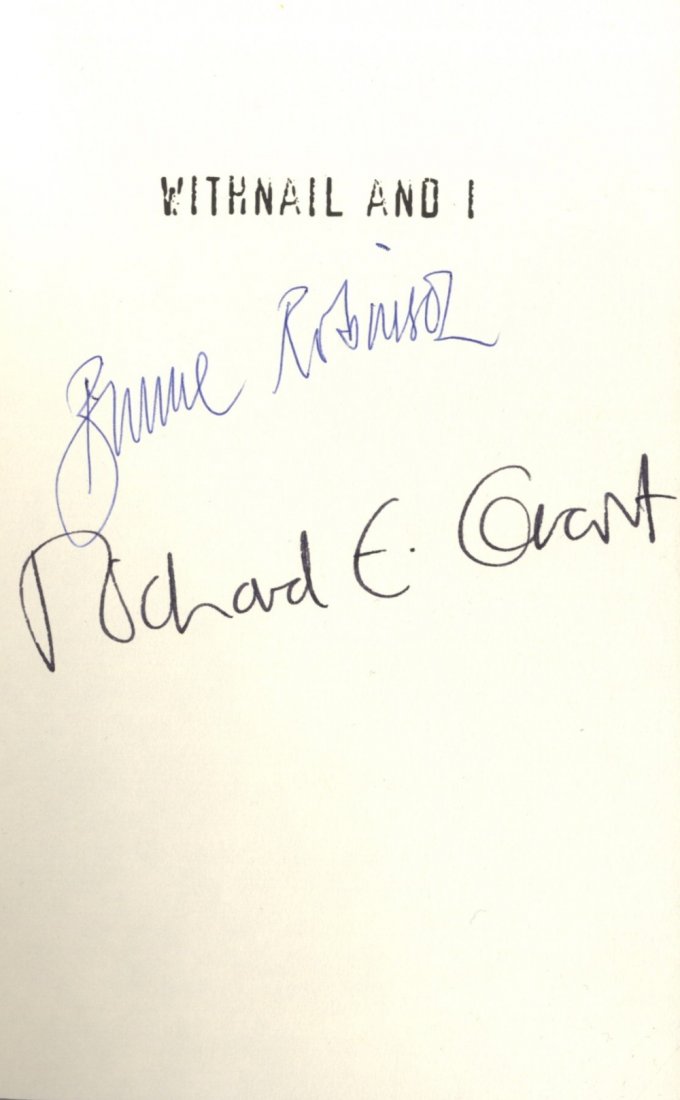 WITHNAIL AND I
Bruce Robinson
Richard E. Grant